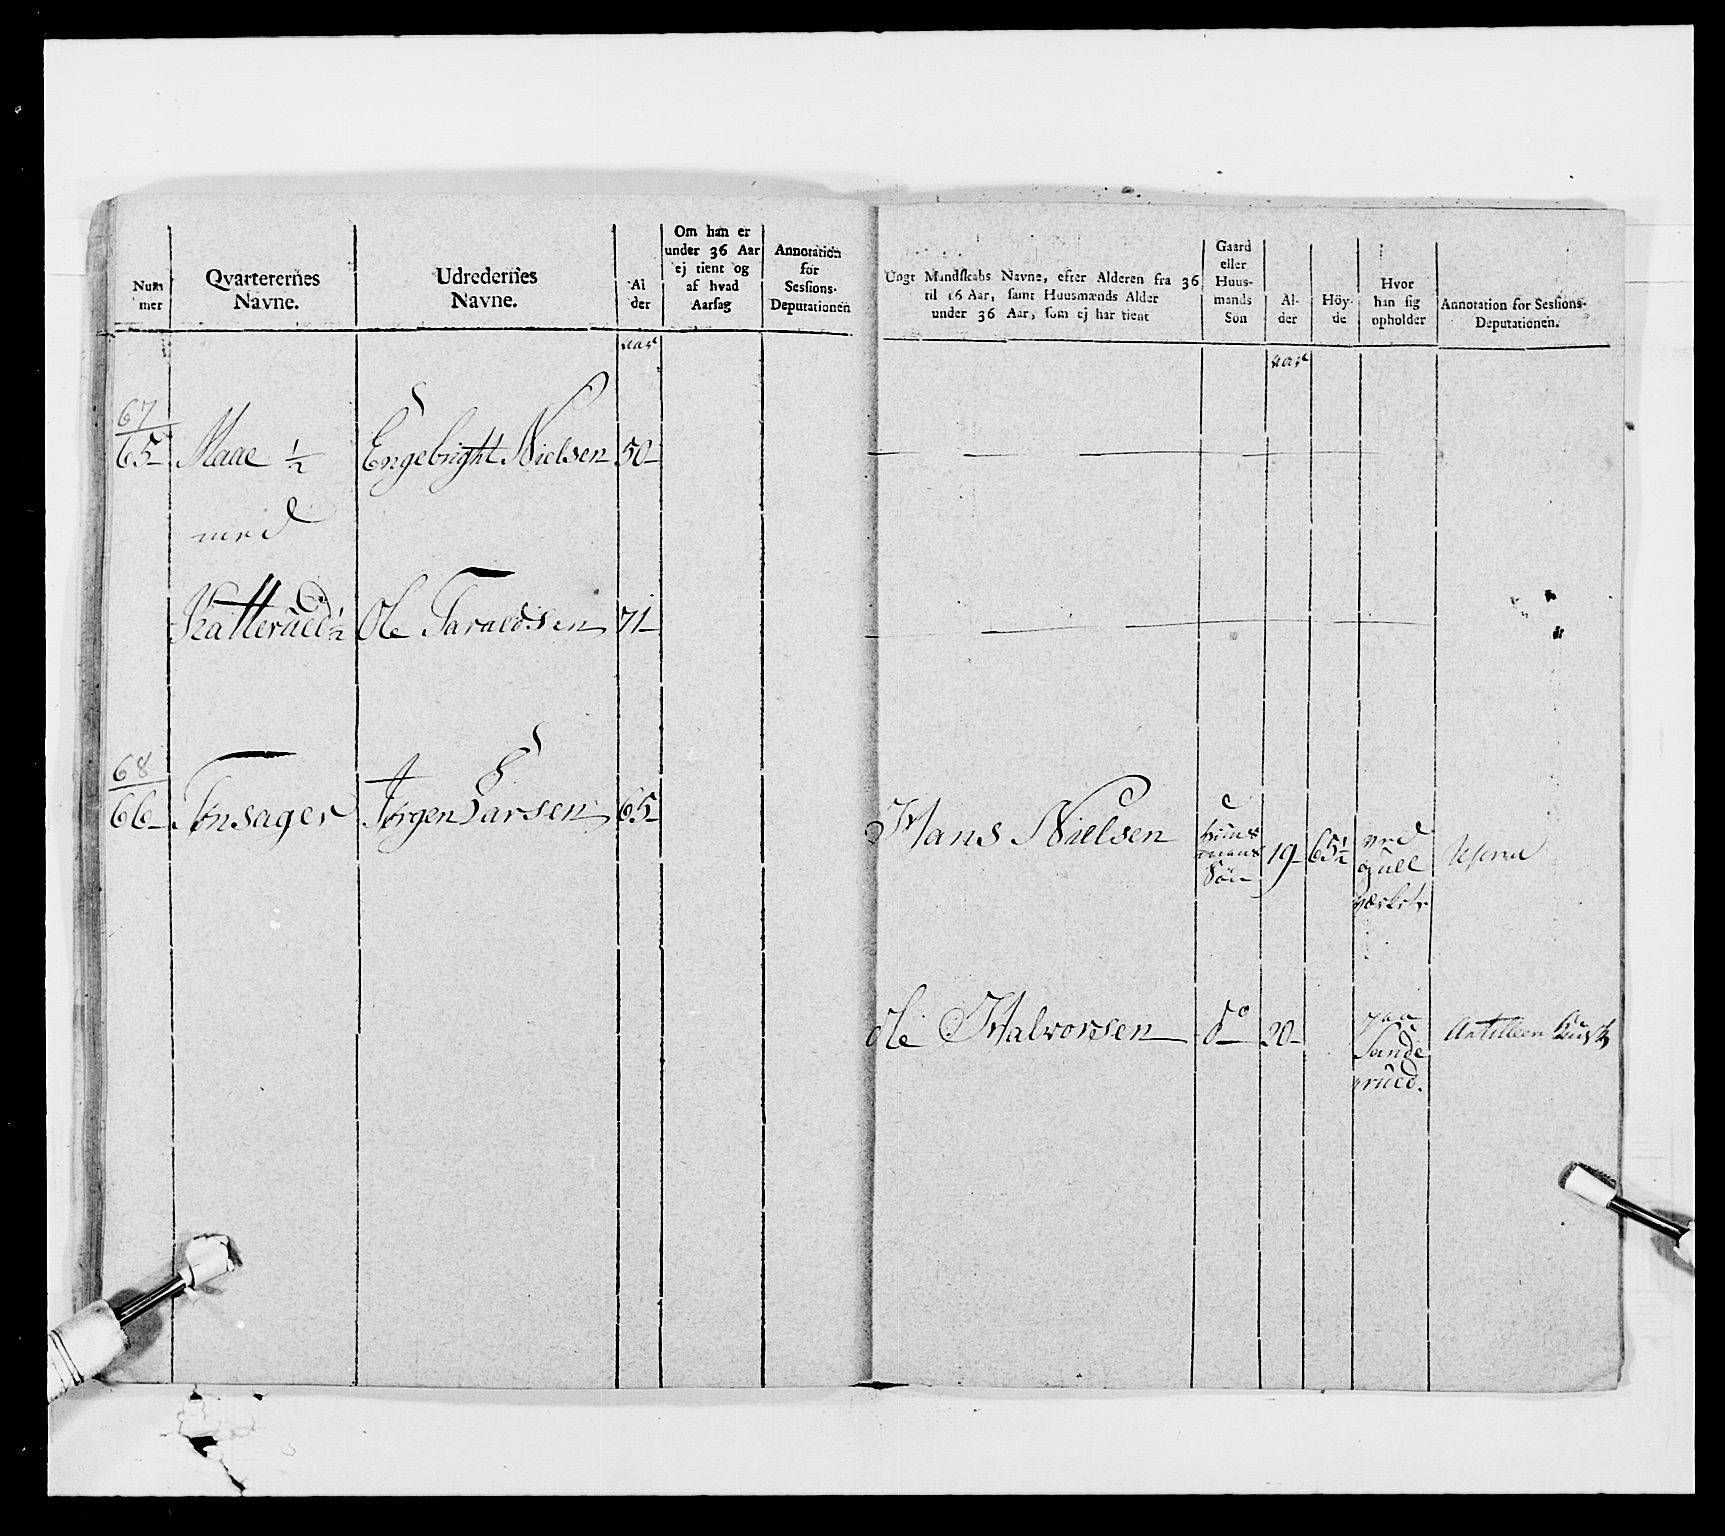 Num
mer
Qvarterernes
Navne.
Udredernes
Navne.
Al
der
Om han er
under 36 Aar
ej tient og
af hvad
Aarsag
Annotation
for
Sessions-
Deputationen
Ungt Mandskabs Navne, efter Alderen fra 36
til 16 Aar, samt Huusmænds Alder
under 36 Aar, som ej har tient
Gaard
eller
Huus-
mands
Søn
Al-
der
Höy-
de
Hvor
han sig
opholder
Annotation for Sessions-
Deputationen.
aar
aar
67
65 Maae 1/2 Engebright Nielsen 50
med
Katterued 1/2 Ole Taraldsen 71
68
66 Tønsager Jørgen Larsen 65
Hans Nielsen huus 19 65 1/2 ved
mans guld
Søn værket
Ole Halvorsen do 20 paa
Sande
rued.